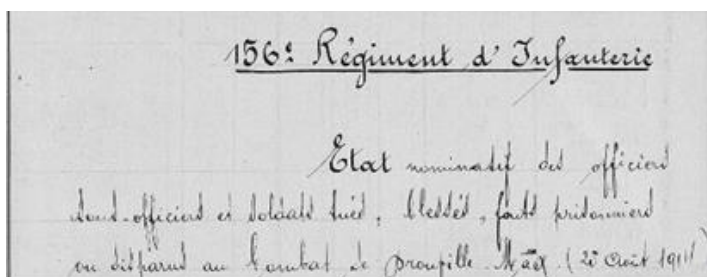 156e Régiment d'Infanterie
Etat nominatif des officiers
sous-officiers et soldats tués, blessés, faits prisonniers
ou disparus au Combat de (20 Août 1914)